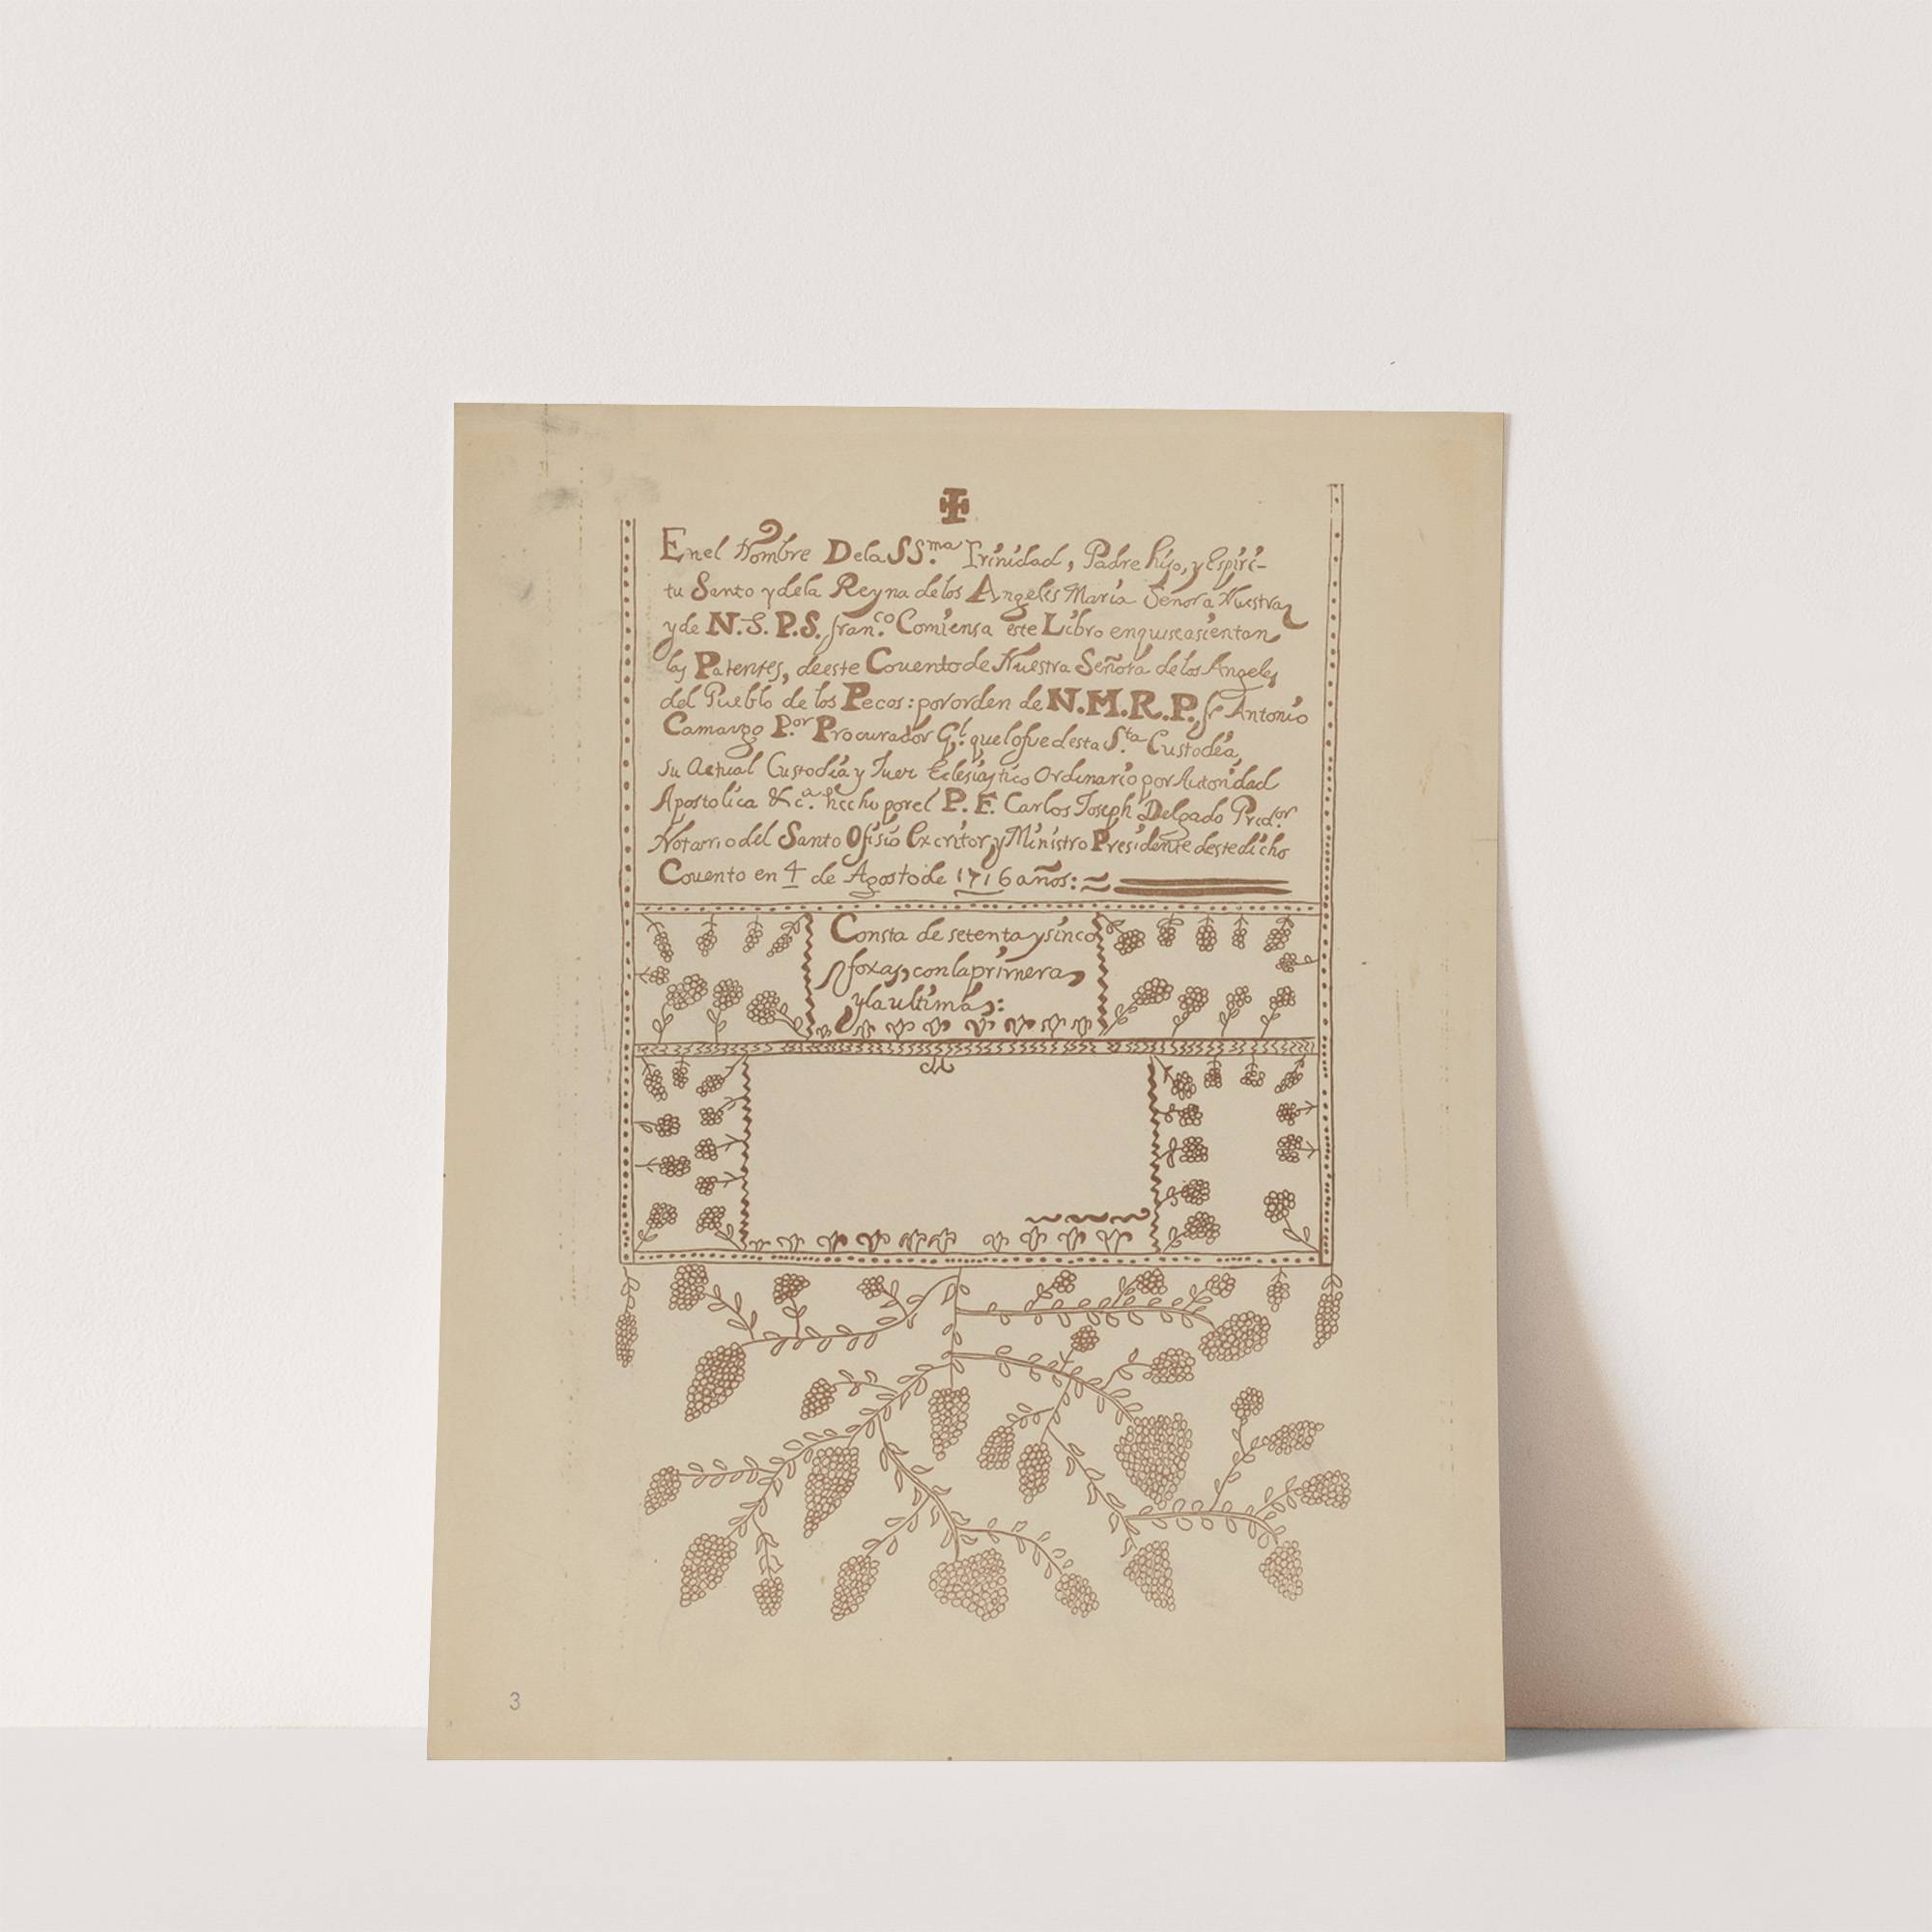 Enel Nombre Dela SS.ma Trinidad, Padre hijo, y Espiri-
tu Santo y dela Reyna delos Angeles Maria Señora Nuestra
y de N. S. P. S. fran.co Comiensa este Libro enquiseasientan
las Patentes, deeste Couento de Nuestra Señora delos Angeles
del Pueblo de los Pecos: pororden de N. M. R. P. fr Antonio
Camargo P.or Procurador G.l quelofue desta S.ta Custodia,
su Actual Custodia y Juez Eclesiastico Ordinario por Autoridad
Apostolica &c.a hecho porel P. F. Carlos Joseph Delgado Pred.or
Notario del Santo Ofisio Excritor y Ministro Presidente destedicho
Couento en 4 de Agosto de 1716 años:
Consta de setenta ysinco
foxas, con laprimera
yla ultima:
3